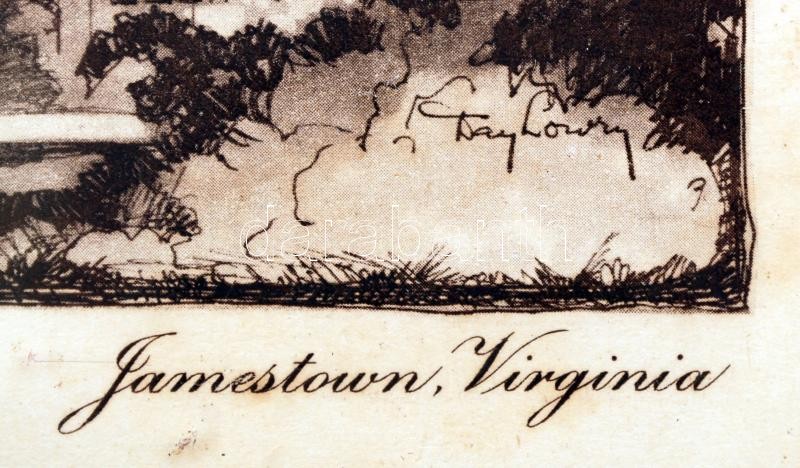 Kay Lowry
9
darabanth
Jamestown, Virginia